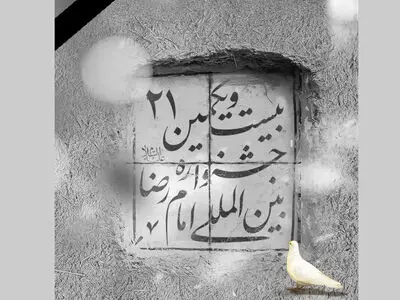 بیست و یکمین ۲۱
جشنواره
بین المللی امام رضا